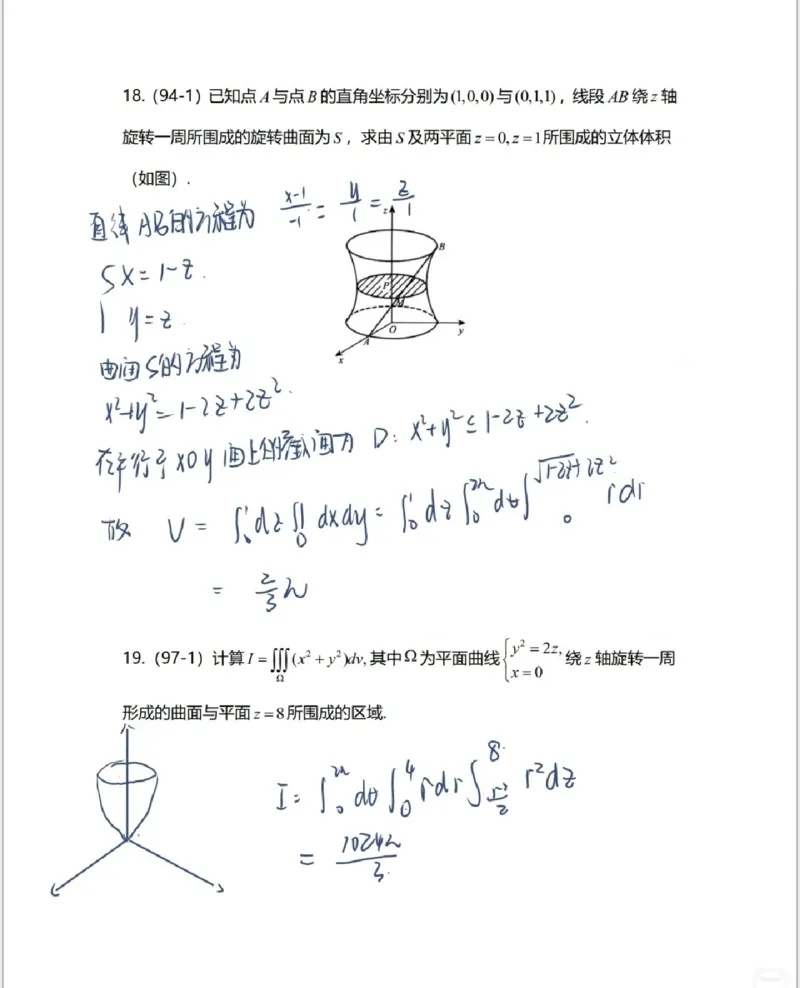 18.(94-1)已知点A与点B的直角坐标分别为(1,0,0)与(0,1,1),线段AB绕z轴
旋转一周所围成的旋转曲面为S,求由S及两平面z=0,z=1所围成的立体体积
(如图).
直线AB的方程为 (x-1)/(-1) = y/1 = z/1
{x=1-z.
y=z.
曲面S的方程为
x²+y²=1-2z+2z².
在平行于xOy面上的截面为 D: x²+y²≤1-2z+2z².
故 V = ∫₀¹dz∬_D dxdy = ∫₀¹dz∫₀^{2π}dθ∫₀^{√(1-2z+2z²)} rdr
= 2/3 π
z
B
P
M
O
A
x
y
19.(97-1)计算I=∭_Ω(x²+y²)dv,其中Ω为平面曲线{y²=2z, x=0 绕z轴旋转一周
形成的曲面与平面z=8所围成的区域.
I = ∫₀^{2π}dθ∫₀⁴rdr∫_{r²/2}^8 r²dz
= 1024π/3.